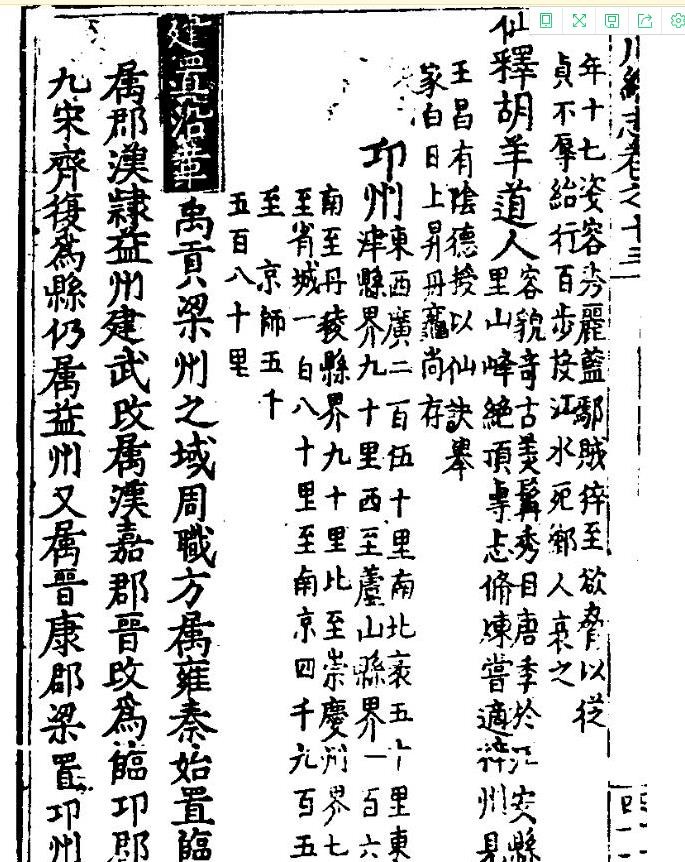 川總志卷之十三
年十七姿容秀麗藍鄢賊猝至欲脅以従
貞不辱紿行百步投江水死鄉人哀之
仙釋胡羊道人
容貌奇古美髯秀目唐季於江安縣
里山峰絶頂專志脩煉嘗適梓州見
王昌有陰德授以仙訣舉
家白日上昇丹竈尚存
卭州
東西廣二百伍十里南北袤五十里東
津縣界九十里西至蘆山縣界一百六
南至丹稜縣界九十里北至崇慶州界七
至省城一百八十里至南京四千九百五
至京師五千
五百八十里
建置沿革禹貢梁州之域周職方属雍秦始置臨
属郡漢隸益州建武改属漢嘉郡晉改爲臨卭郡
九宋齊復爲縣仍属益州又属晉康郡梁置卭州